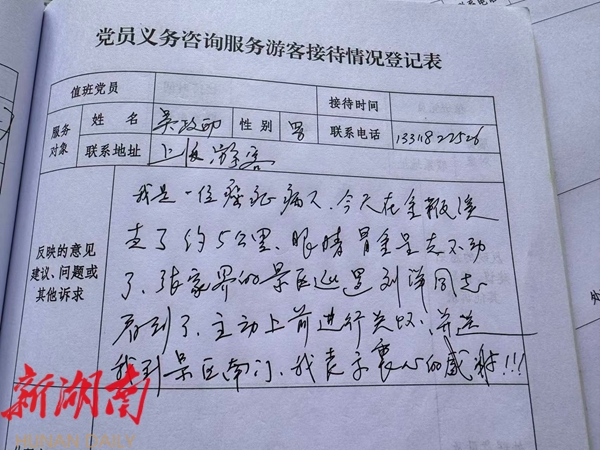 党员义务咨询服务游客接待情况登记表
值班党员 接待时间
服务对象 姓 名 吴政 性 别 男 联系电话 1331822526
联系地址 上 游客
反映的意见建议、问题或其他诉求
我是一位癌症病人、今天在金鞭溪
走了约5公里、眼睛冒金星走不动
了、张家界的景区巡逻刘洋同志
看到了、主动上前进行关怀、并送
我到景区南门、我表示衷心的感谢!!!
新湖南
HUNAN DAILY